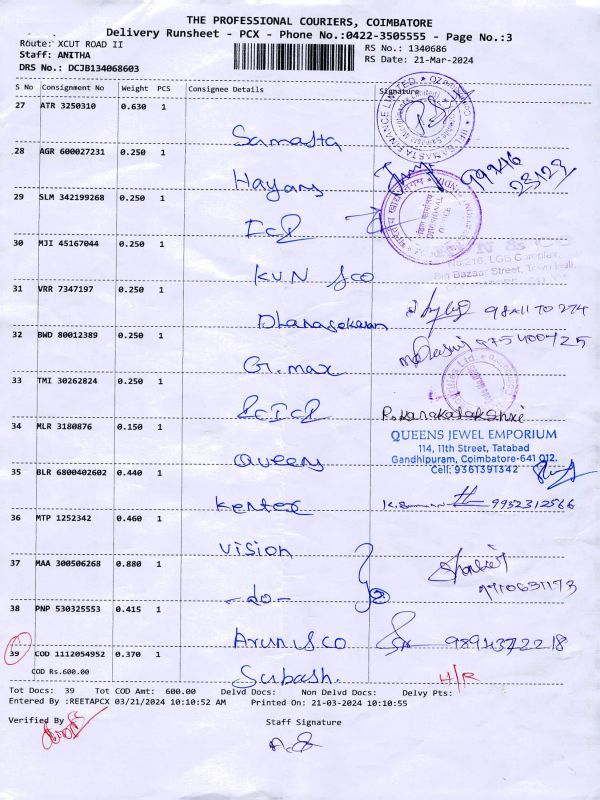 THE PROFESSIONAL COURIERS, COIMBATORE
Delivery Runsheet - PCX - Phone No.:0422-3505555 - Page No.:3
Route: XCUT ROAD II
RS No.: 1340686
Staff: ANITHA
RS Date: 21-Mar-2024
DRS No.: DCJB134068603
S No Consignment No Weight PCS Consignee Details Signature
27 ATR 3250310 0.630 1
Samasta
28 AGR 600027231 0.250 1
99746
23123
Hayans
29 SLM 342199268 0.250 1
ICP
30 MJI 45167044 0.250 1
No.216, LGB Complex,
Big Bazaar Street, Town Hall,
KVN & co
31 VRR 7347197 0.250 1
Dhanasekaran
32 BWD 80012389 0.250 1
975400425
G.max
33 TMI 30262824 0.250 1
P. Kanakalakshmi
34 MLR 3180876 0.150 1
QUEENS JEWEL EMPORIUM
114, 11th Street, Tatabad
Gandhipuram, Coimbatore-641 012.
Cell: 9361391342
Queens
35 BLR 6800402602 0.440 1
Kentex
9952312566
36 MTP 1252342 0.460 1
Vision
37 MAA 300506268 0.880 1
-do-
38 PNP 530325553 0.415 1
Arun & co
39 COD 1112054952 0.370 1
Subash.
H/R
COD Rs.600.00
Tot Docs: 39 Tot COD Amt: 600.00 Delvd Docs: Non Delvd Docs: Delvy Pts:
Entered By :REETAPCX 03/21/2024 10:10:52 AM Printed On: 21-03-2024 10:10:55
Verified By
Staff Signature